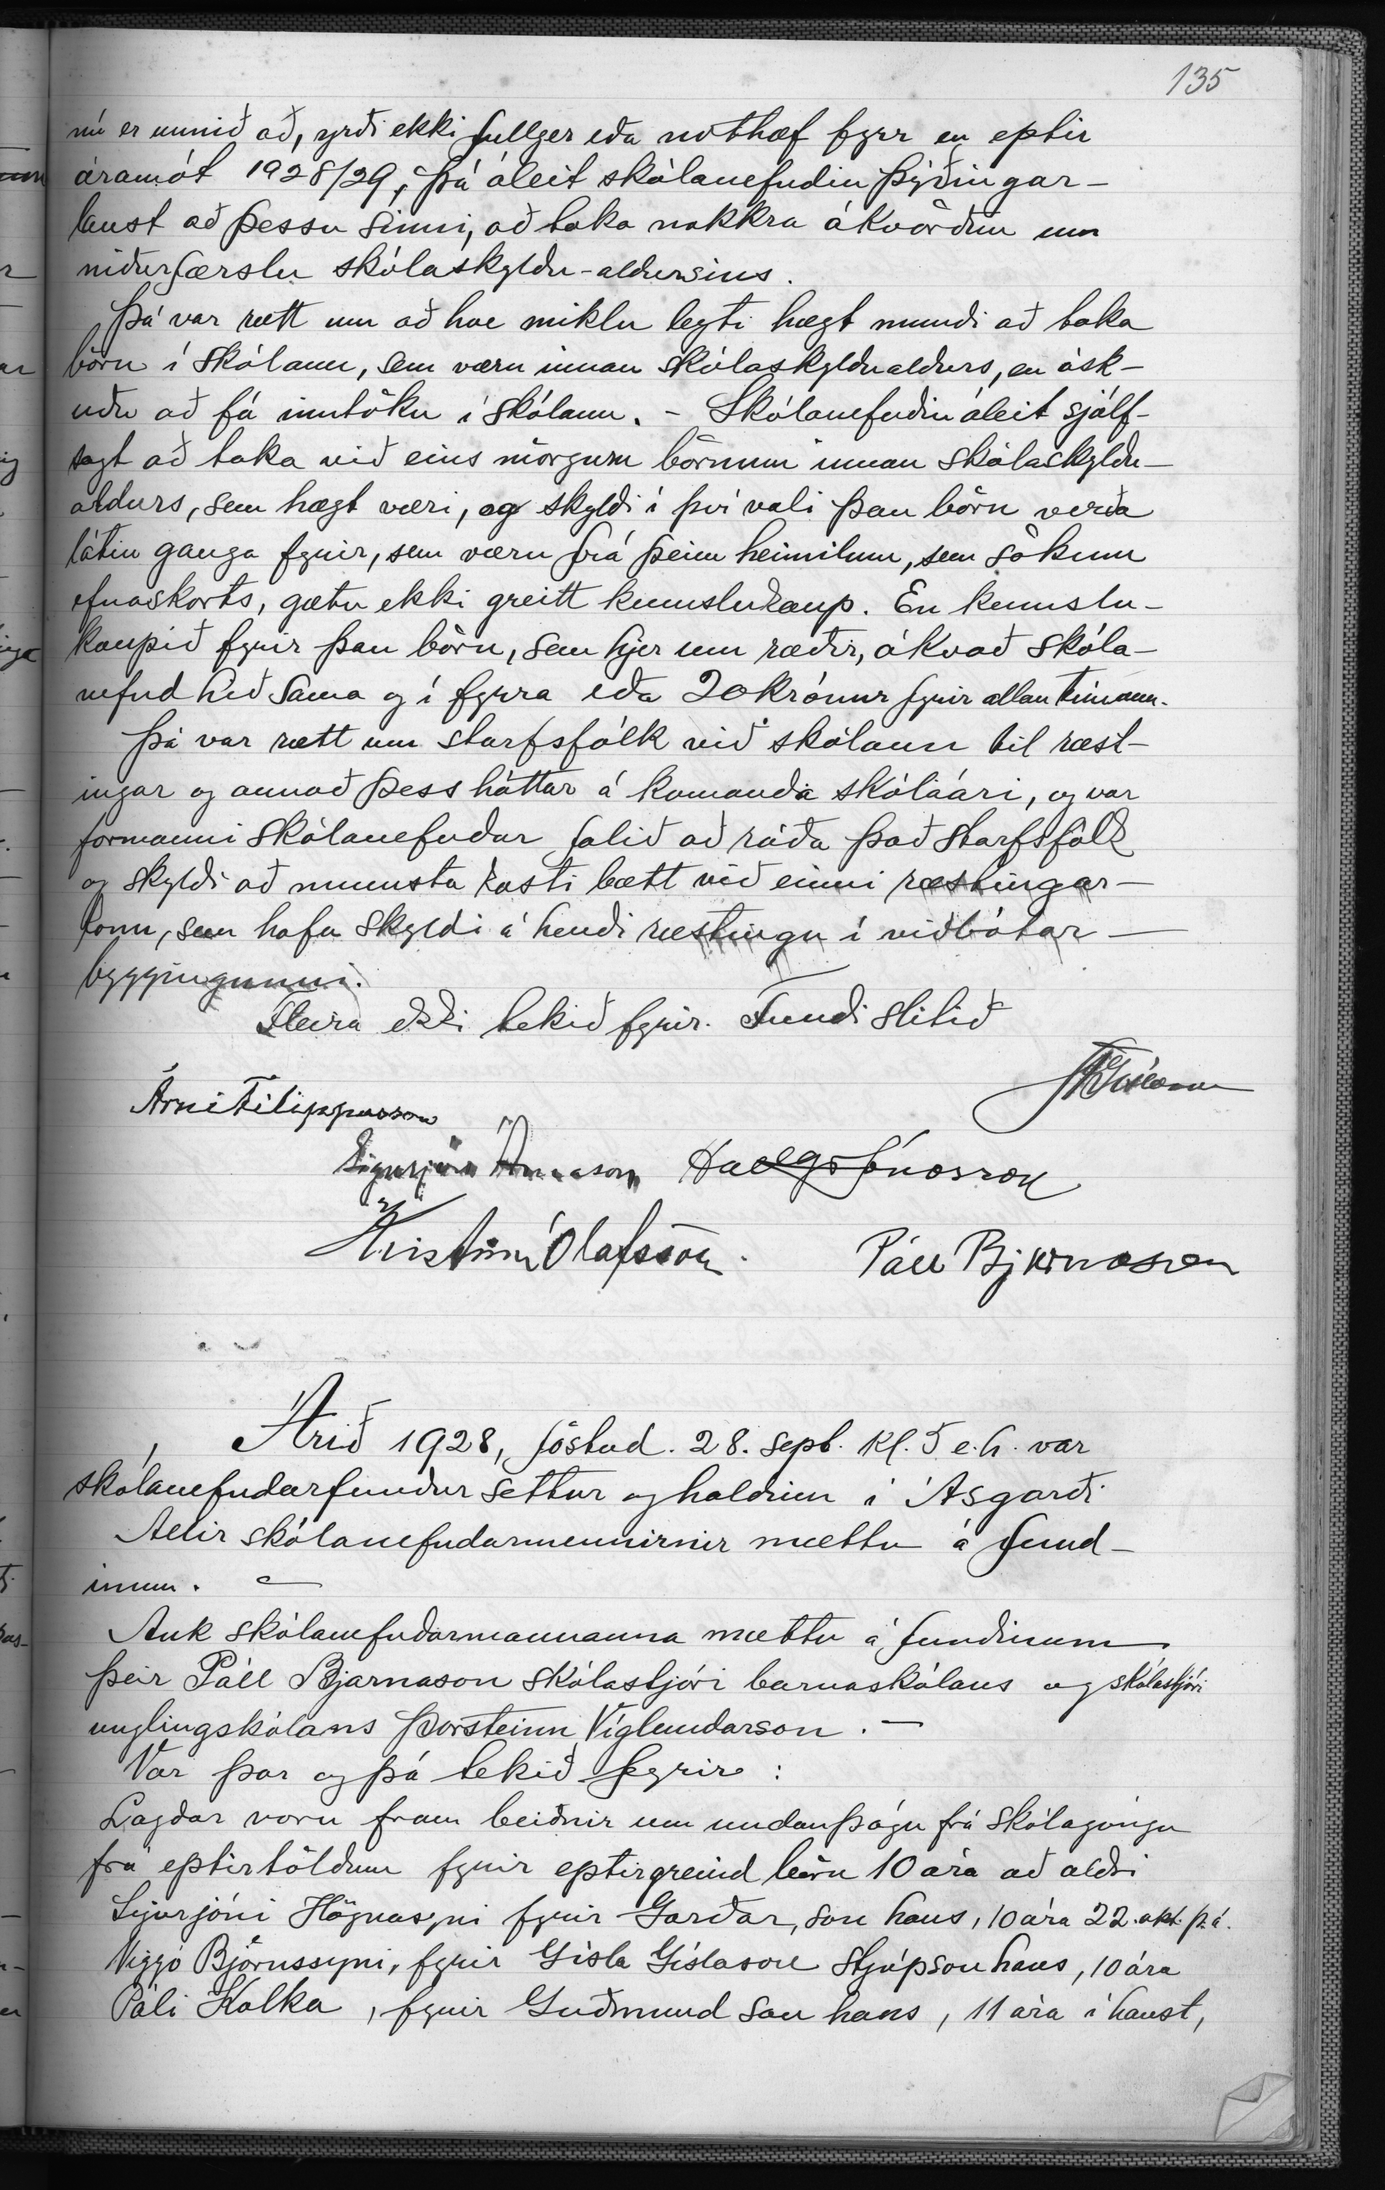 135
nú er unnið að, yrði ekki fullger eða nothæf fyrr en eptir
áramót 1928/29, þá áleit skólanefndin þýðingar-
laust að þessu sinni, að taka nokkra ákvörðun um
niðurfærslu skólaskyldu-aldursins.
Þá var rætt um að hve miklu leyti hægt mundi að taka
börn í skólann, sem væru innan skólaskyldualdurs, en ósk-
uðu að fá inntöku í skólann. - Skólanefndin áleit sjálf-
sagt að taka við eins mörgum börnum innan skólaskyldu-
aldurs, sem hægt væri, og skyldi í því vali þau börn verða
látin ganga fyrir, sem væru frá þeim heimilum, sem sökum
efnaskorts, gætu ekki greitt kennslukaup. En kennslu-
kaupið fyrir þau börn, sem hjer um ræðir, ákvað skóla-
nefnd hið sama og í fyrra eða 20 krónur fyrir allan tímann.
Þá var rætt um starfsfólk við skólann til ræst-
ingar og annað þess háttar á komanda skólaári, og var
formanni skólanefndar falið að ráða það starfsfólk
og skyldi að minnsta kosti bætt við einni ræstingar-
konu, sem hafa skyldi á hendi ræstingu í viðbótar-
byggingunni.
Fleira ekki tekið fyrir. Fundi slitið
Árni Filippusson
Sigurjón Árnason Hallgr Jónasson
Kristinn Ólafsson. Páll Bjarnason
Árið 1928, föstud. 28. sept. kl. 5 e.h. var
skólanefndarfundur settur og haldinn í Ásgarði.
Allir skólanefndarmennirnir mættu á fund-
inum. -
Auk skólanefndarmannanna mættu á fundinum
þeir Páll Bjarnason skólastjóri barnaskólans og skólastjóri
unglingskólans Þorsteinn Víglundarson. -
Var þar og þá tekið fyrir:
Lagðar voru fram beiðnir um undanþágu frá skólagöngu
frá eptirtöldum fyrir eptirgreind börn 10 ára að aldri
Sigurjóni Högnasyni fyrir Garðar, son hans, 10 ára 22. okt. þ.á.
Viggó Björnssyni, fyrir Gísla Gíslason stjúpson hans, 10 ára
Páli Kolka, fyrir Guðmund son hans, 11 ára í haust,